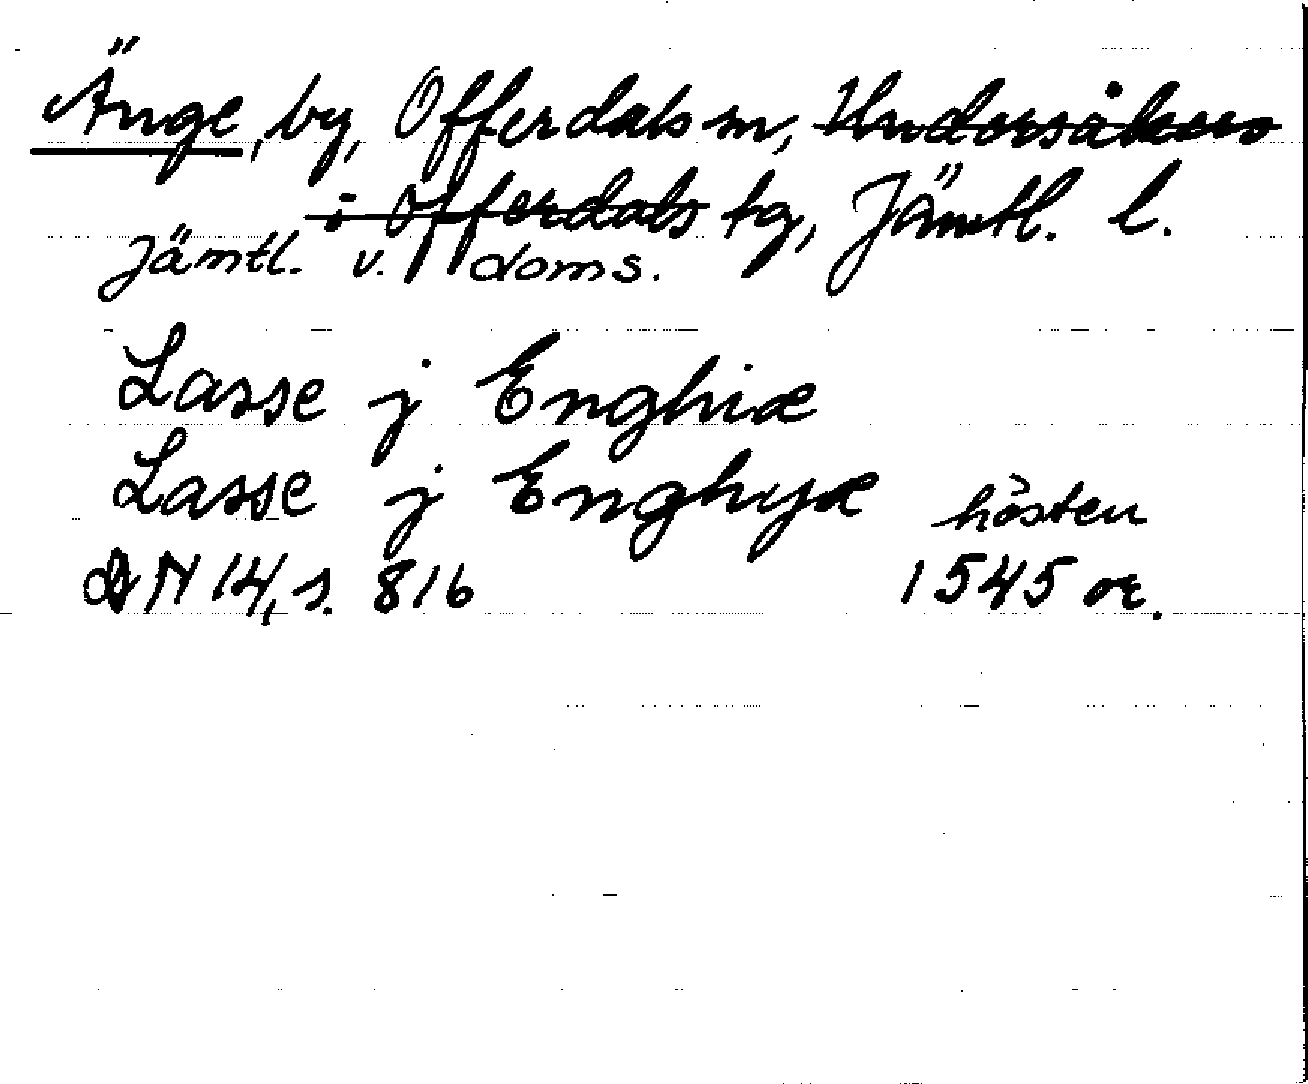 Änge, by, Offerdals sn, Undersåkers
i Offerdals tg, Jämtl. l.
Jämtl. v. doms.
Lasse j Enghiæ
Lasse j Enghyæ hösten
DN 14, s. 816 1545 or.